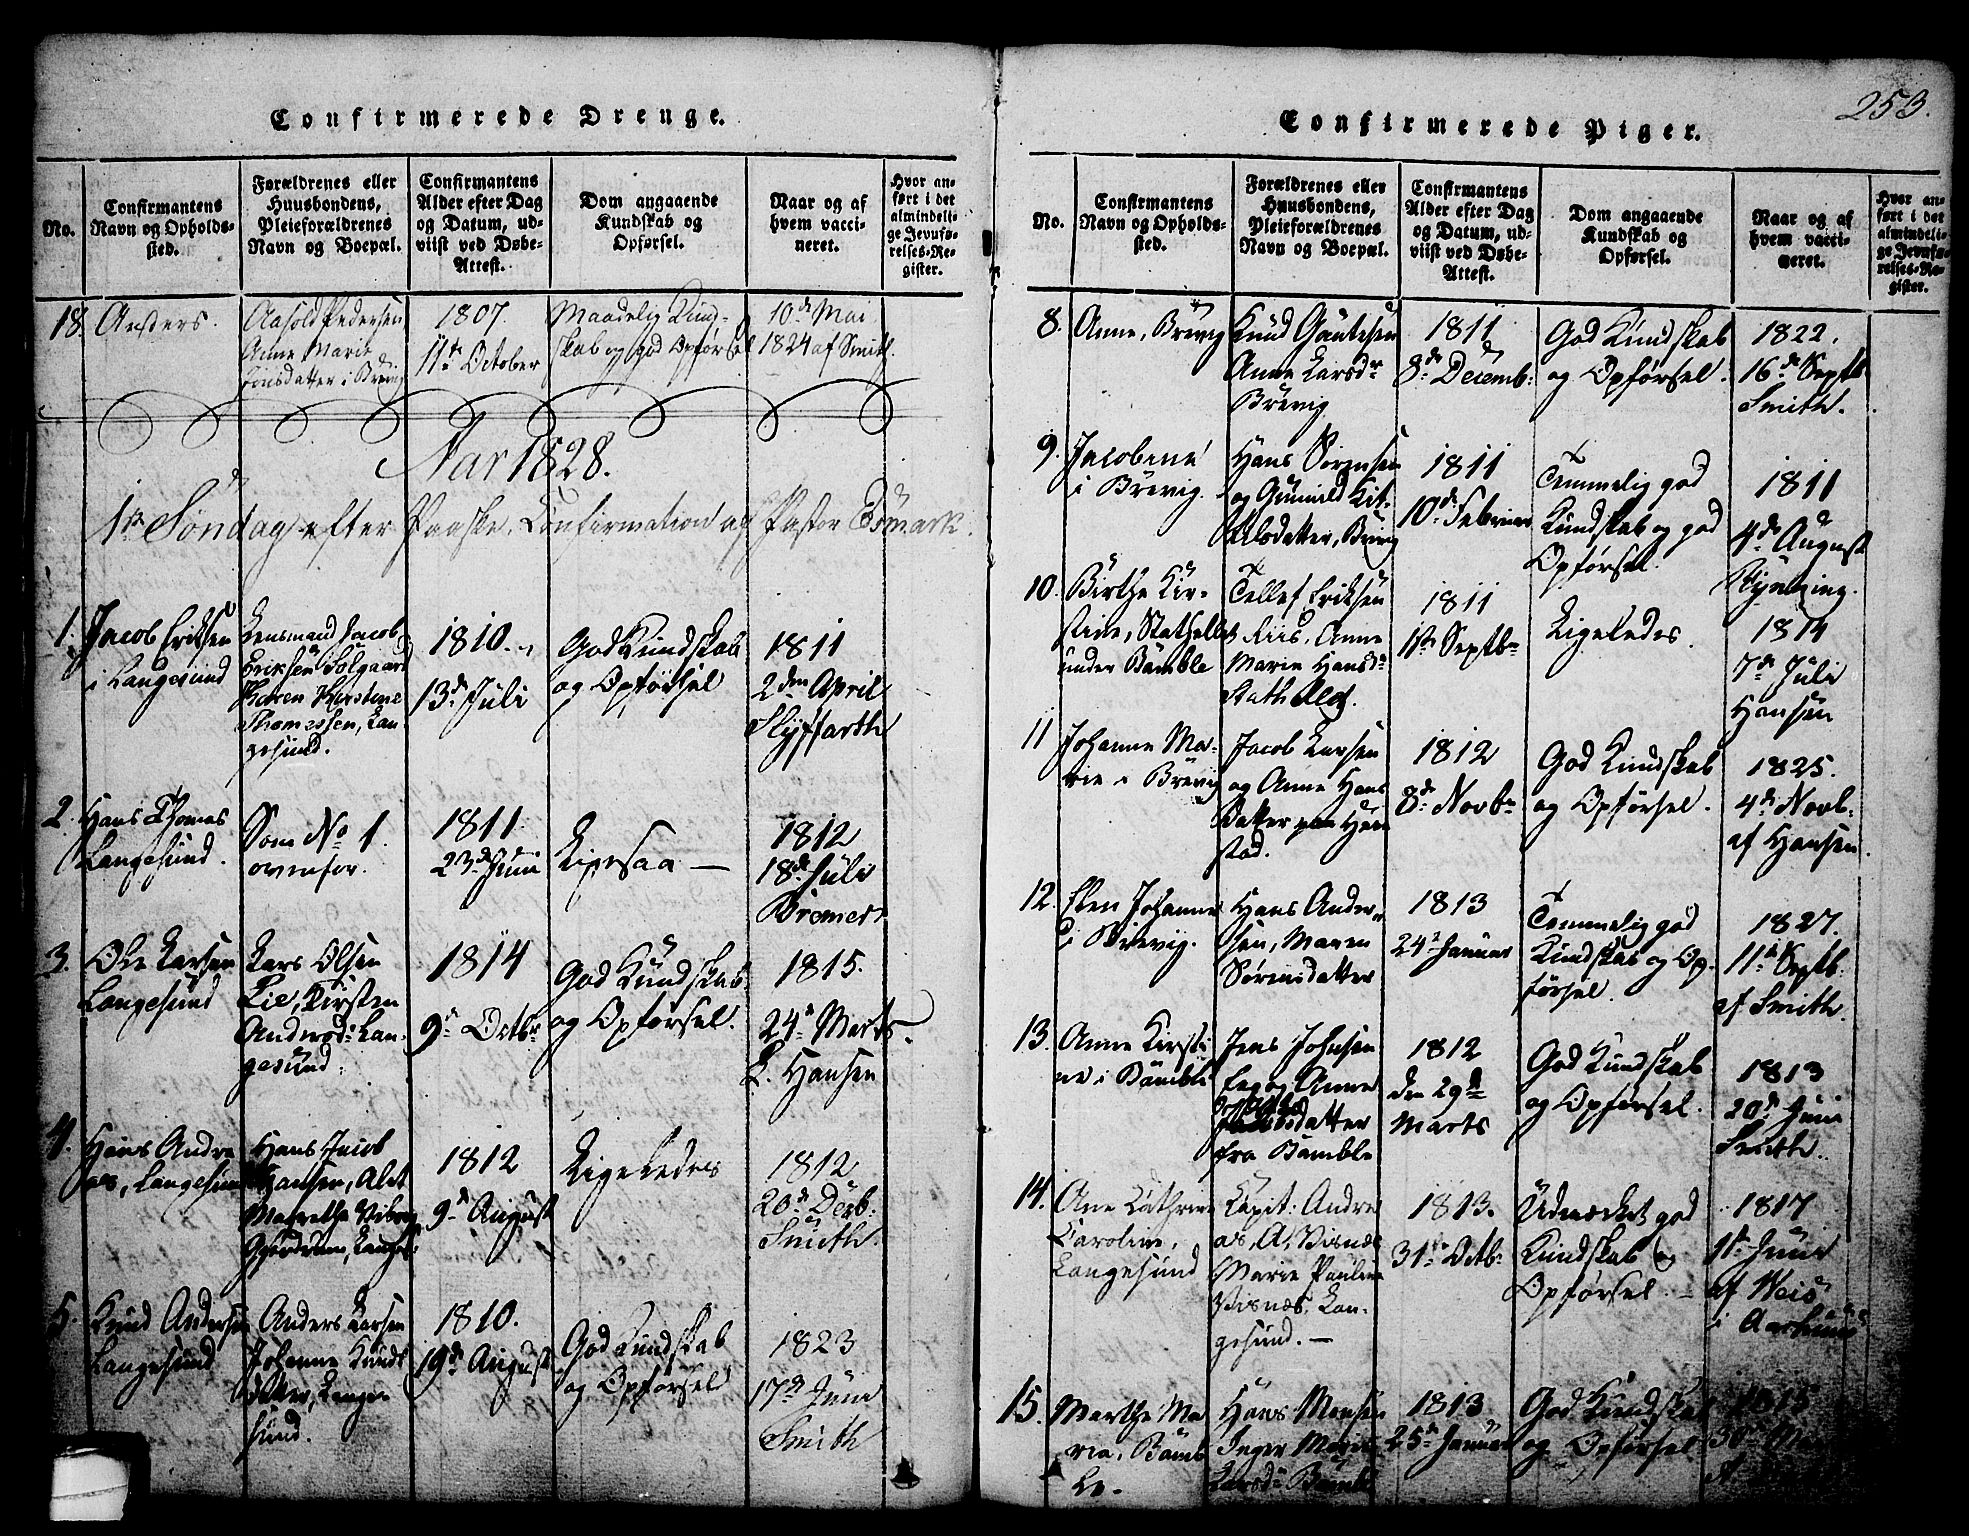 Confirmerede Drenge.
No.
Confirmantens
Navn og Opholds-
sted.
Forældrenes eller
Huusbondens,
Pleieforældrenes
Navn og Boepæl.
Confirmantens
Alder efter Dag
og Datum, ud-
viist ved Døbe-
Attest.
Dom angaaende
Kundskab og
Opførsel.
Naar og af
hvem vacci-
neret.
Hvor an-
ført i det
almindeli-
ge Jevnfø-
relses-Re-
gister.
18.
Anders.
Aasold Pedersen
Anne Marie
Jonsdatter i Brevig
1807
11te October
Maadelig Kund-
skab og god Opførsel
10de Mai
1824 af Smith.
Aar 1828.
1ste Søndag efter Paaske, Confirmation af Pastor Esmark.
1.
Jacob Eriksen
i Langesund
Lensmand Jacob
Eriksen Solgaard
Karen Kirstine
Thomessen, Lan-
gesund.
1810.
13de Juli
God Kundskab
og Opførsel
1811
2den April
2.
Hans Thomas
Langesund.
Som No 1.
ovenfor.
1811.
23de Juni
Ligesaa —
1812
18de Juli
Bremer
3.
Ole Larsen
Langesund
Lars Olsen
Lie, Kirsten
Lan-
gesund.
1814
9de Octbr
God Kundskab
og Opførsel.
1815.
24de Marts.
L. Hansen
4.
Hans Andre
as, Langesund
Hans Jacob
Hansen, Alet
Margrethe Viborg
1812
9de August
Ligeledes
1812
20de Decb.
Smith.
5.
Knud Andersen
Langesund
Anders Larsen
Johanne Knuds
datter, Lange
sund.
1810.
19de August
God Kundskab
og Opførsel
1823
17de Juni
Smith
253.
Confirmerede Piger.
No.
Confirmantens
Navn og Opholds-
sted.
Forældrenes eller
Huusbondens,
Pleieforældrenes
Navn og Boepæl.
Confirmantens
Alder efter Dag
og Datum, ud-
viist ved Døbe-
Attest.
Dom angaaende
Kundskab og
Opførsel.
Naar og af
hvem vacci-
neret.
Hvor an-
ført i det
almindeli-
ge Jevnfø-
relses-Re-
gister.
8.
Anne, Brevig
Knud Gautesen
Anne Larsdr
Brevig
1811
8de Decemb:
God Kundskab
og Opførsel.
1822.
16de Septb
Smith.
9.
Jacobine
i Brevig.
Hans Sørensen
og Gunnild Kit-
tilsdatter, Brevig
1811
10de Februar
Temmelig god
Kundskab og god
Opførsel.
1811
4de August
10.
Birthe Kir-
stine, Stathelle
under Bamble
Tellef Eriksen
Riis, Anne
Marie Hansd
Stathelle.
1811
1ste Septbr
Ligeledes.
1814
7de Juli
Hansen
11
Johanne Ma-
rie i Brevig
Jacob Larsen
og Anne Hans
Datter
stad.
1812
8de Novbr
God Kundskab
og Opførsel.
1825.
4de Novb.
af Hansen.
12.
Elen Johanne
i Brevig.
Hans Ander
sen, Maren
Sørensdatter
1813
24de Januar
Temmelig god
Kundskab og Op-
førsel.
1827.
11te Septb.
af Smith.
13.
Anne Kirsti
ne i Bamble
Jens Johnsen
og Anne
datter
fra Bamble
1812
den 29de
Marts
God Kundskab
og Opførsel.
1813
20de Juni
Smith.
14.
Ane Cathrine
Caroline,
Langesund
Capit: Andre
as, A, Visnæs
Marie Pauline
Visnæs, Lan-
gesund. —
1813.
31te Octb.
Udmærket god
Kundskab og
Opførsel. —
1817
1ste Juni
af Weis
i
15.
Marthe Ma
ria, Bamb
le.
Hans Monsen
Inger Marie
Larsd: Bamble
1813
25de Januar
God Kundskab
og Opførsel
1815
30te